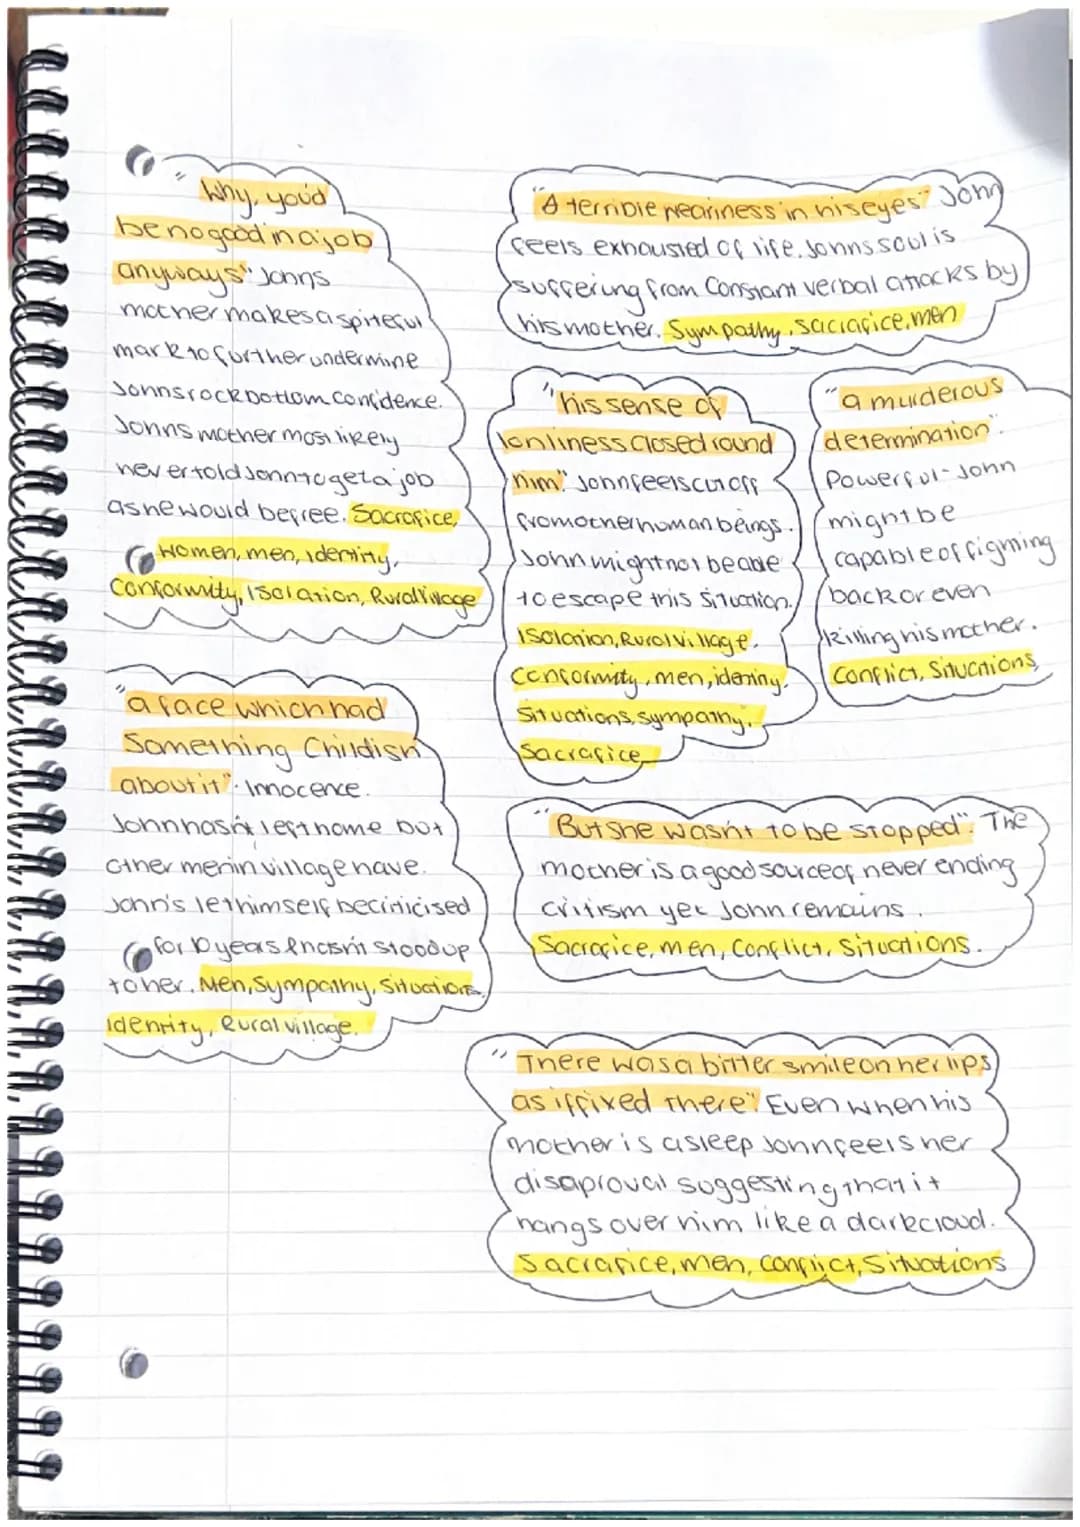 " Why, you'd
be no good in a job
anyways" Johns
mother makes a spiteful
mark to further undermine
Johns rock bottom confidence.
Johns mother most likely
never told John to get a job
as he would be free. Sacrafice,
Women, men, Identity,
Conformity, Isolation, Rural Village
"a face which had
Something Childish
about it". Innocence.
John hasn't left home but
other men in village have.
John's let himself be criticised
for 10 years & hasn't stood up
to her. Men, Sympathy, Situations
Identity, Rural village.
"A terrible weariness in his eyes" John
feels exhausted of life. Johns soul is
suffering from Constant verbal attacks by
his mother. Sympathy, sacrafice, men
"his sense of
lonliness closed round
him". John feels cut off
from other human beings.
John might not be able
to escape this situation.
Isolation, Rural village.
Conformity, men, identity.
Situations, sympathy,
Sacrafice
"a murderous
determination".
Powerful - John
might be
capable of fighting
back or even
killing his mother.
Conflict, Situations
"But she wasn't to be stopped". The
mother is a good source of never ending
critism yet John remains.
Sacrafice, men, Conflict, Situations.
"There was a bitter smile on her lips
as if fixed there". Even when his
mother is asleep John feels her
disaproval suggesting that it
hangs over him like a dark cloud.
Sacrafice, men, conflict, Situations